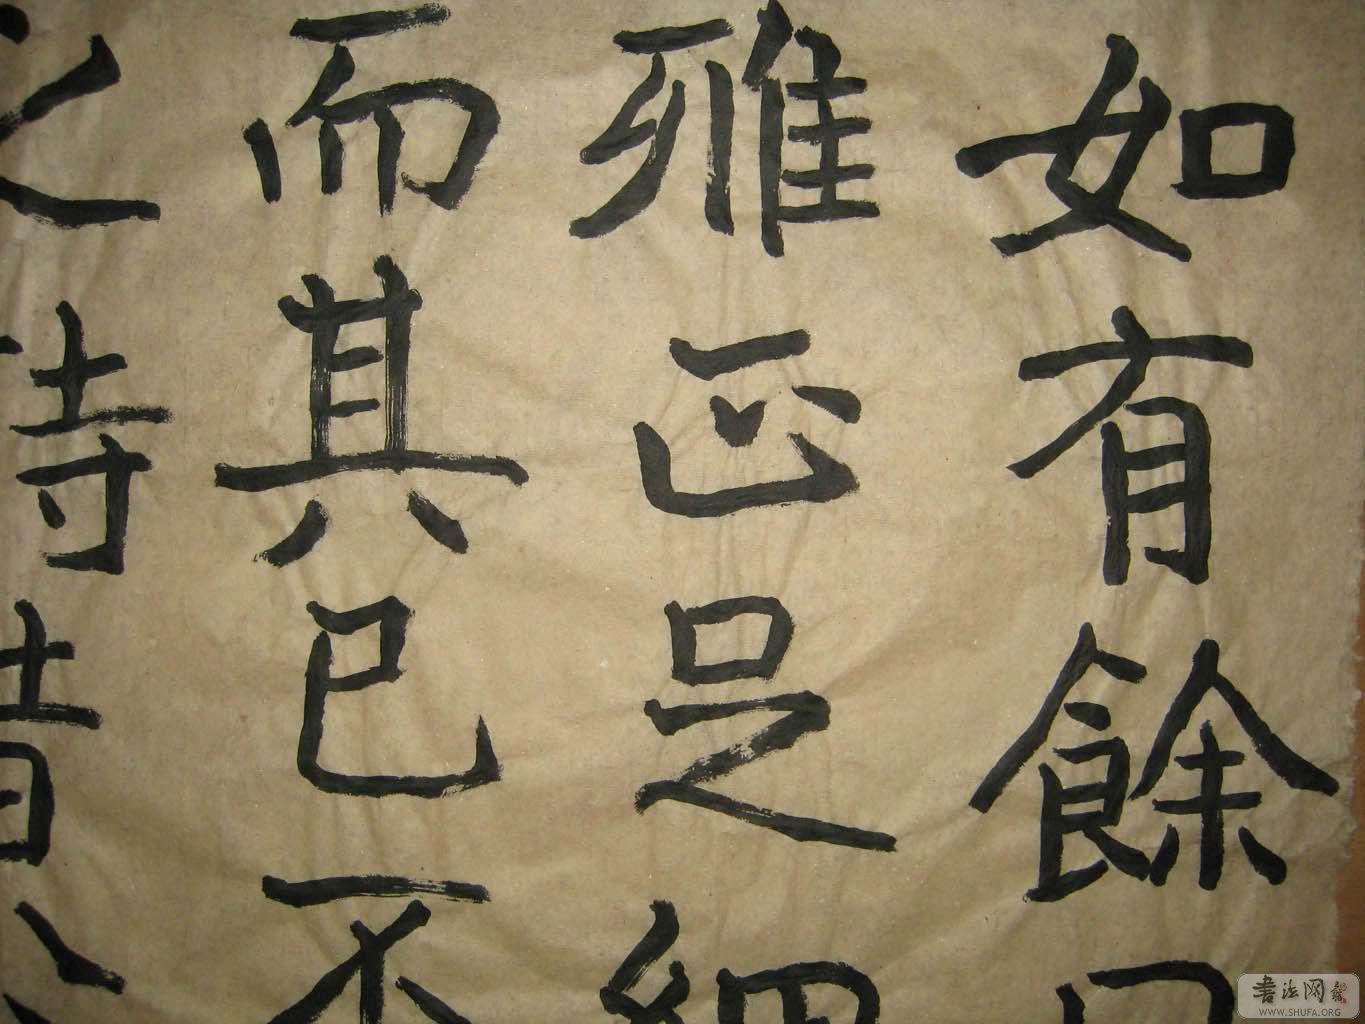 如有餘
雅正足細
而其已不
之
書法网
WWW.SHUFA.ORG